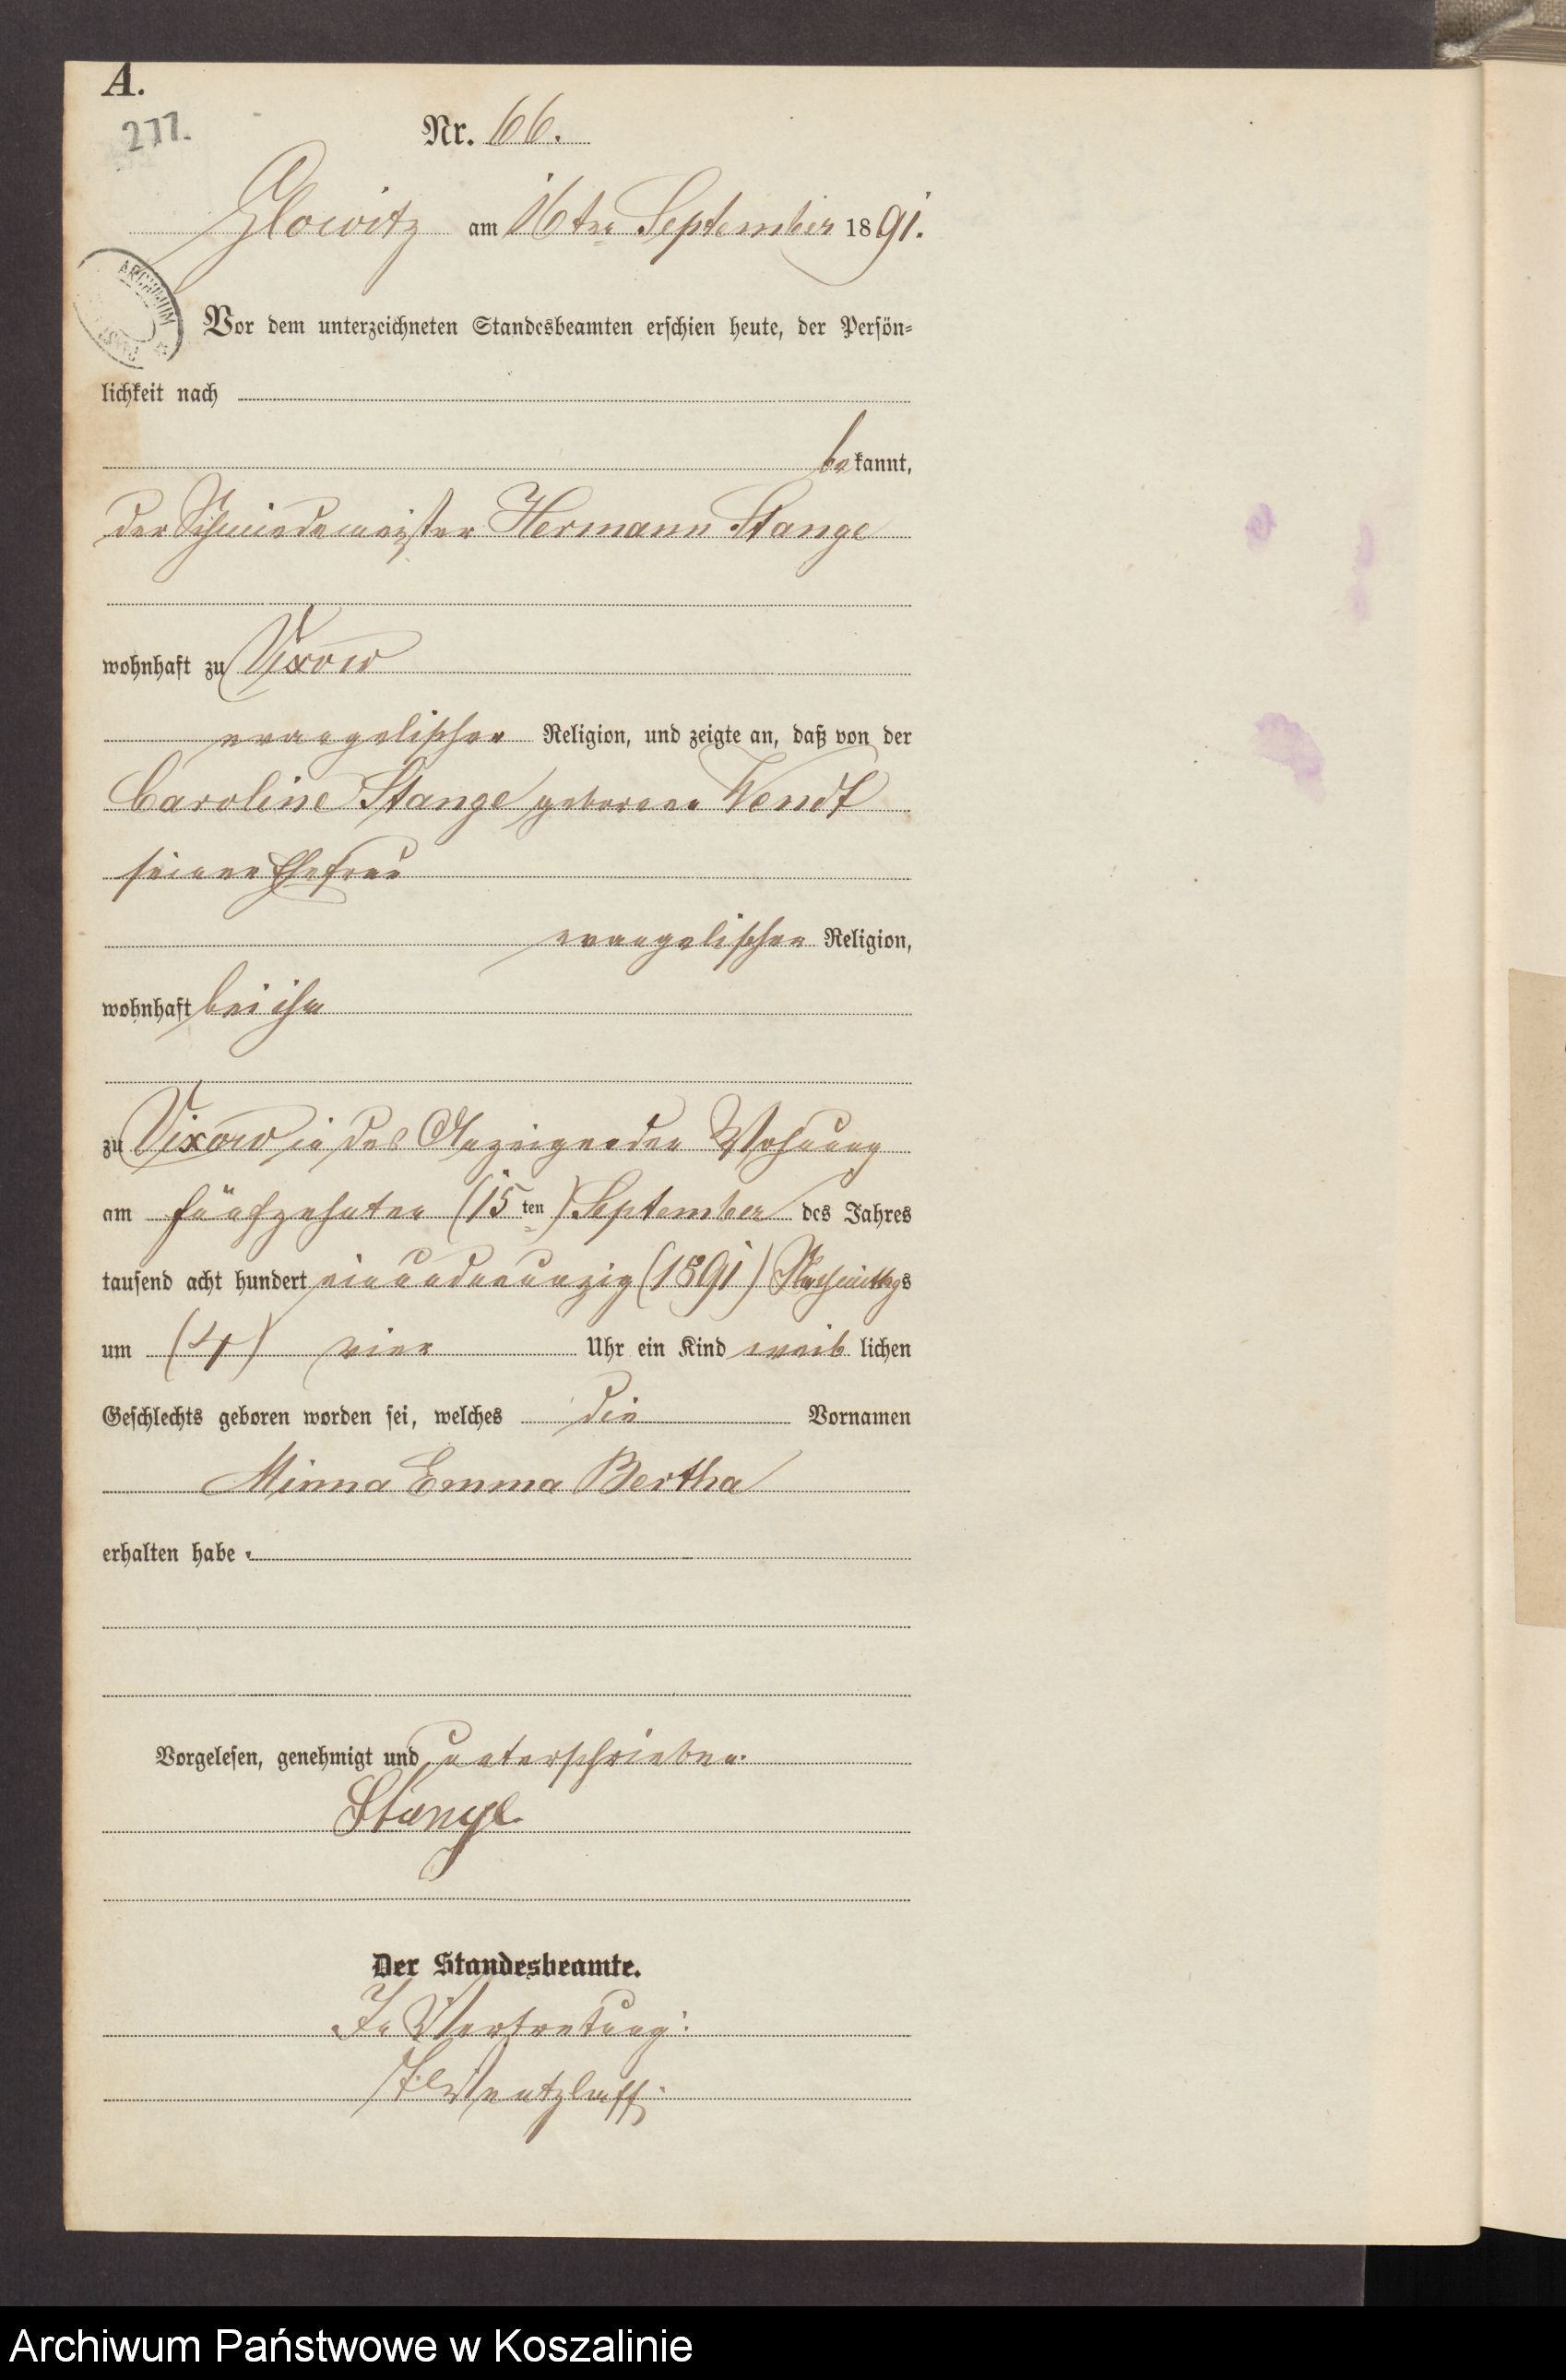 A.
277.
Nr. 66.
Glowitz am 16ten September 1891.
ARCHIWUM
Vor dem unterzeichneten Standesbeamten erschien heute, der Persön-
lichkeit nach
bekannt,
der Schmiedemeister Hermann Stange
wohnhaft zu Vixow
evangelischer Religion, und zeigte an, daß von der
Caroline Stange geborene Wendt
seiner Ehefrau
evangelischer Religion,
wohnhaft bei ihm
zu Vixow in des Anzeigenden Wohnung
am fünfzehnten (15ten) September des Jahres
tausend acht hundert einundneunzig (1891) Nachmittags
um (4) vier Uhr ein Kind weiblichen
Geschlechts geboren worden sei, welches die Vornamen
Minna Emma Bertha
erhalten habe.
Vorgelesen, genehmigt und unterschrieben.
Stange
Der Standesbeamte.
In Vertretung:
Wentzlaff.
Archiwum Państwowe w Koszalinie